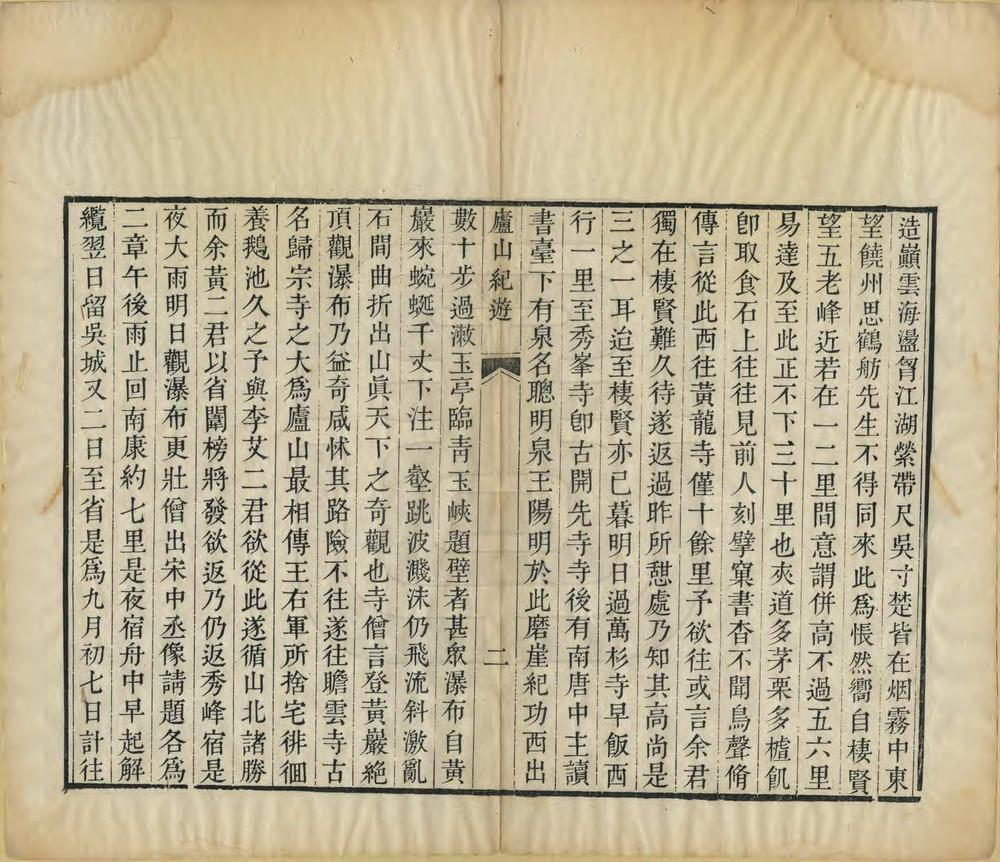 造巔雲海盪胷江湖縈帶尺吳寸楚皆在烟霧中東
望饒州思鶴舫先生不得同來此爲悵然嚮自棲賢
望五老峰近若在一二里間意謂併高不過五六里
易達及至此正不下三十里也夾道多茅栗多樝飢
卽取食石上往往見前人刻擘窠書杳不聞鳥聲脩
傳言從此西往黃龍寺僅十餘里予欲往或言余君
獨在棲賢難久待遂返過昨所憇處乃知其高尚是
三之一耳迨至棲賢亦已暮明日過萬杉寺早飯西
行一里至秀峯寺卽古開先寺寺後有南唐中主讀
書臺下有泉名聰明泉王陽明於此磨崖紀功西出
廬山紀遊 二
數十步過漱玉亭臨靑玉峽題壁者甚眾瀑布自黃
巖來蜿蜒千丈下注一壑跳波濺沫仍飛流斜激亂
石間曲折出山眞天下之奇觀也寺僧言登黃巖絕
頂觀瀑布乃益奇咸怵其路險不往遂往瞻雲寺古
名歸宗寺之大爲廬山最相傳王右軍所捨宅徘徊
養鵝池久之子與李艾二君欲從此遂循山北諸勝
而余黃二君以省闈榜將發欲返乃仍返秀峰宿是
夜大雨明日觀瀑布更壯僧出宋中丞像請題各爲
二章午後雨止回南康約七里是夜宿舟中早起解
纜翌日留吳城又二日至省是爲九月初七日計往